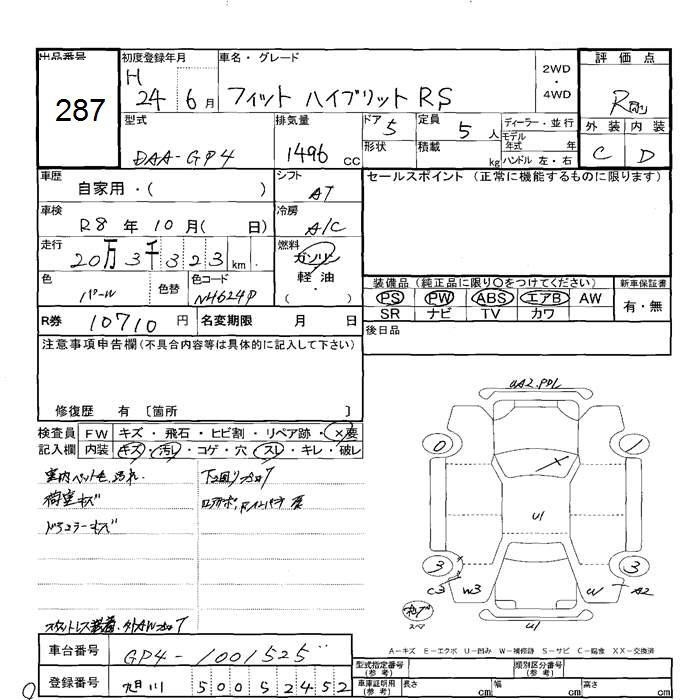 出品番号 287
初度登録年月 H 24 6月
車名・グレード フィット ハイブリット RS
2WD ・ 4WD
評価点 R
外装 C 内装 D
型式 DAA-GP4
排気量 1496 cc
ドア 5
形状
定員 5 人
積載 kg
ディーラー・並行
モデル年式 年
ハンドル 左・右
車歴 自家用・( )
シフト AT
車検 R8 年 10 月( 日)
冷房 A/C
走行 20万3千323 km
燃料 ガソリン 軽油 ・
色 パール 色替 色コード NH624P
R券 10710 円 名変期限 月 日
セールスポイント (正常に機能するものに限ります)
装備品 (純正品に限り○をつけてください)
PS PW ABS エアB AW
SR ナビ TV カワ
新車保証書
有・無
後日品
注意事項申告欄(不具合内容等は具体的に記入して下さい)
修復歴 有 [箇所 ]
検査員記入欄
FW キズ・飛石・ヒビ割・リペア跡・×要
内装 キズ・汚レ・コゲ・穴・スレ・キレ・破レ
室内ペット毛、汚れ
荷室キズ
下回りサビ
UA2.PDL
0 1
U1
3 3
C3 W3 W A2
U1
A-キズ E-エクボ U-凹み W-補修跡 S-サビ C-腐食 XX-交換済
車台番号 GP4-1001525
登録番号 旭川 500 5 2452
型式指定番号(参考) 類別区分番号(参考)
車庫証明用(参考) 長さ cm 幅 cm 高さ cm